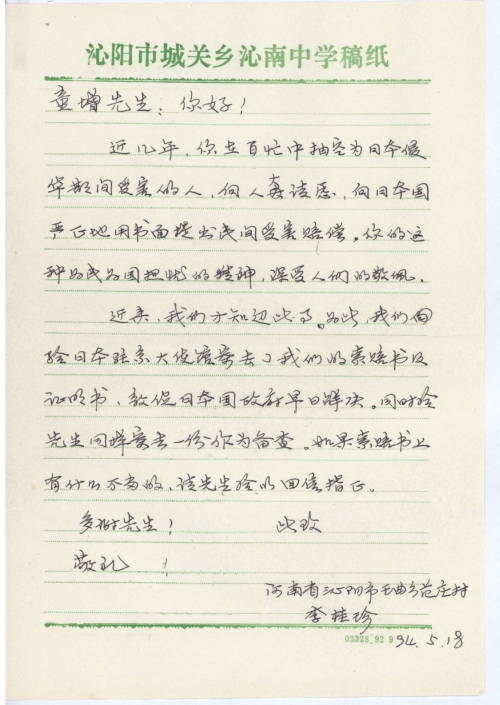 沁阳市城关乡沁南中学稿纸
童增先生：你好！
近几年，你在百忙中抽空为日本侵
华期间受害的人，向人大请愿，向日本国
严正地用书面提出民间受害赔偿。你的这
种为民为国担忧的精神，深受人们的敬佩。
近来，我们才知道此事。为此，我们向
给日本驻京大使馆寄去了我们的索赔书及
证明书，敦促日本国政府早日解决。同时给
先生同样寄去一份作为备查。如果索赔书上
有什么不当的，请先生给以回信指正。
多谢先生！ 此致
敬礼！
河南省沁阳市王曲乡范庄村
李桂珍
03328.92 9
94.5.18